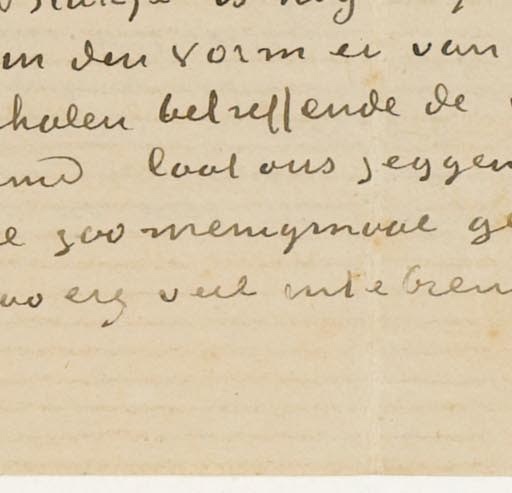 is nog
den vorm er van
halen betreffende de
laat ons zeggen
zoo menigmaal ge
erg veel uit te bren